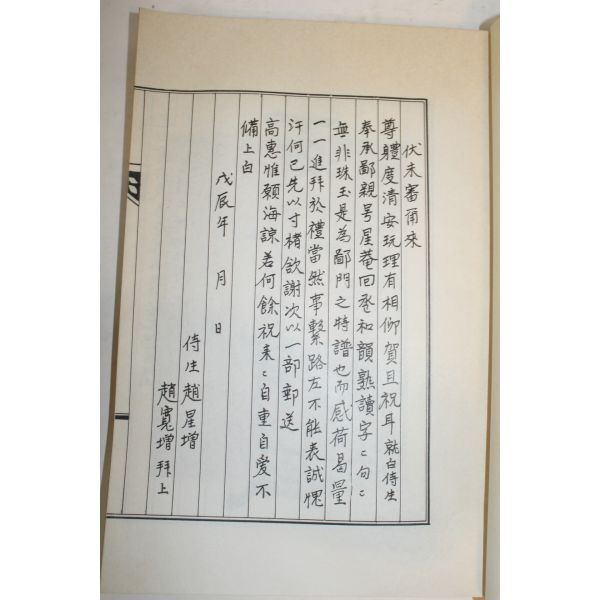 伏未審爾來
尊體度清安玩理有相仰賀且祝耳就白侍生
奉承鄙親号星菴回甲和韻熟讀字〻句〻
無非珠玉是為鄙門之特譜也而感荷曷量
一一進拜於禮當然事繫路左不能表誠愧
汗何已先以寸楮欽謝次以一部郵送
高惠惟願海諒若何餘祝來〻自重自愛不
備上白
戊辰年 月 日
侍生趙星增
趙寬增拜上